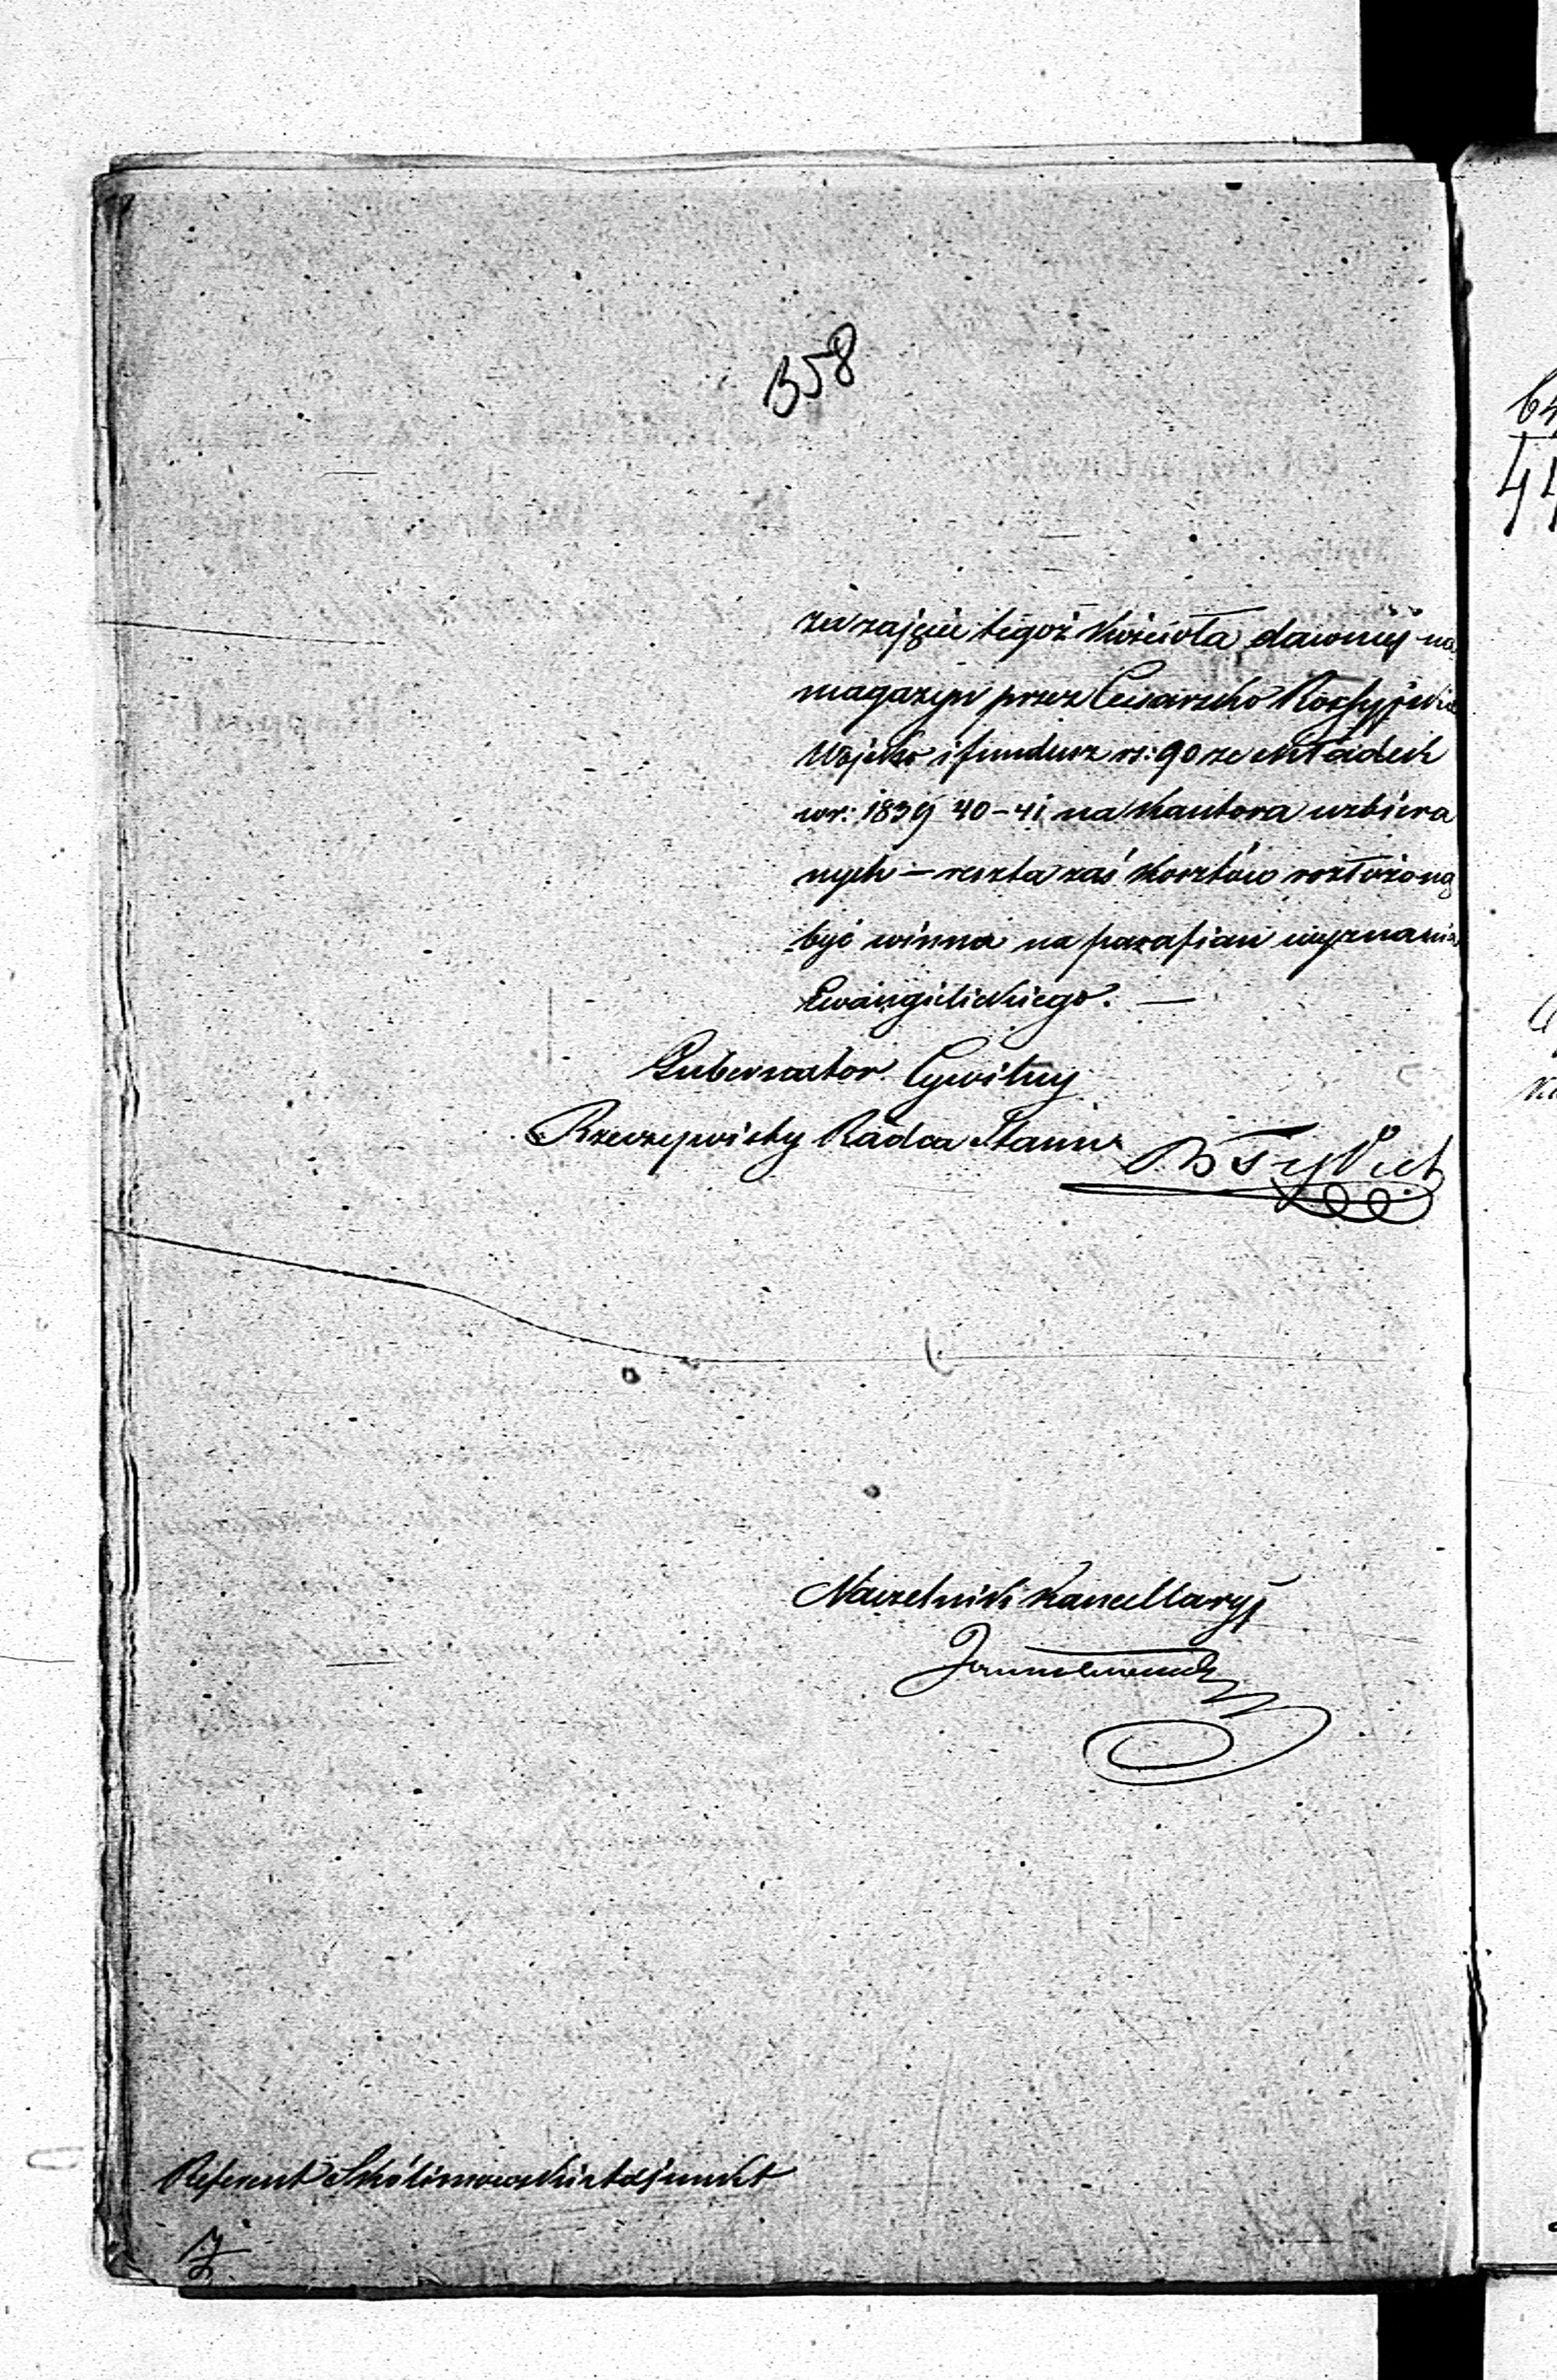 358
za zajęcie tegoż Kościoła dawniéj na
magazyn przez Cesarsko Rossyjskie
Wojsko i fundusz rs: 90 ze składek
w r: 1839 40-41 na Kantora uzbiera
nych — reszta zaś kosztów rozłożoną
być winna na parafian wyznania
Ewangelickiego. —
Gubernator Cywilny
Rzeczywisty Radca Stanu
Naczelnik Kancellaryi
Referent Skolimowski Adjunkt